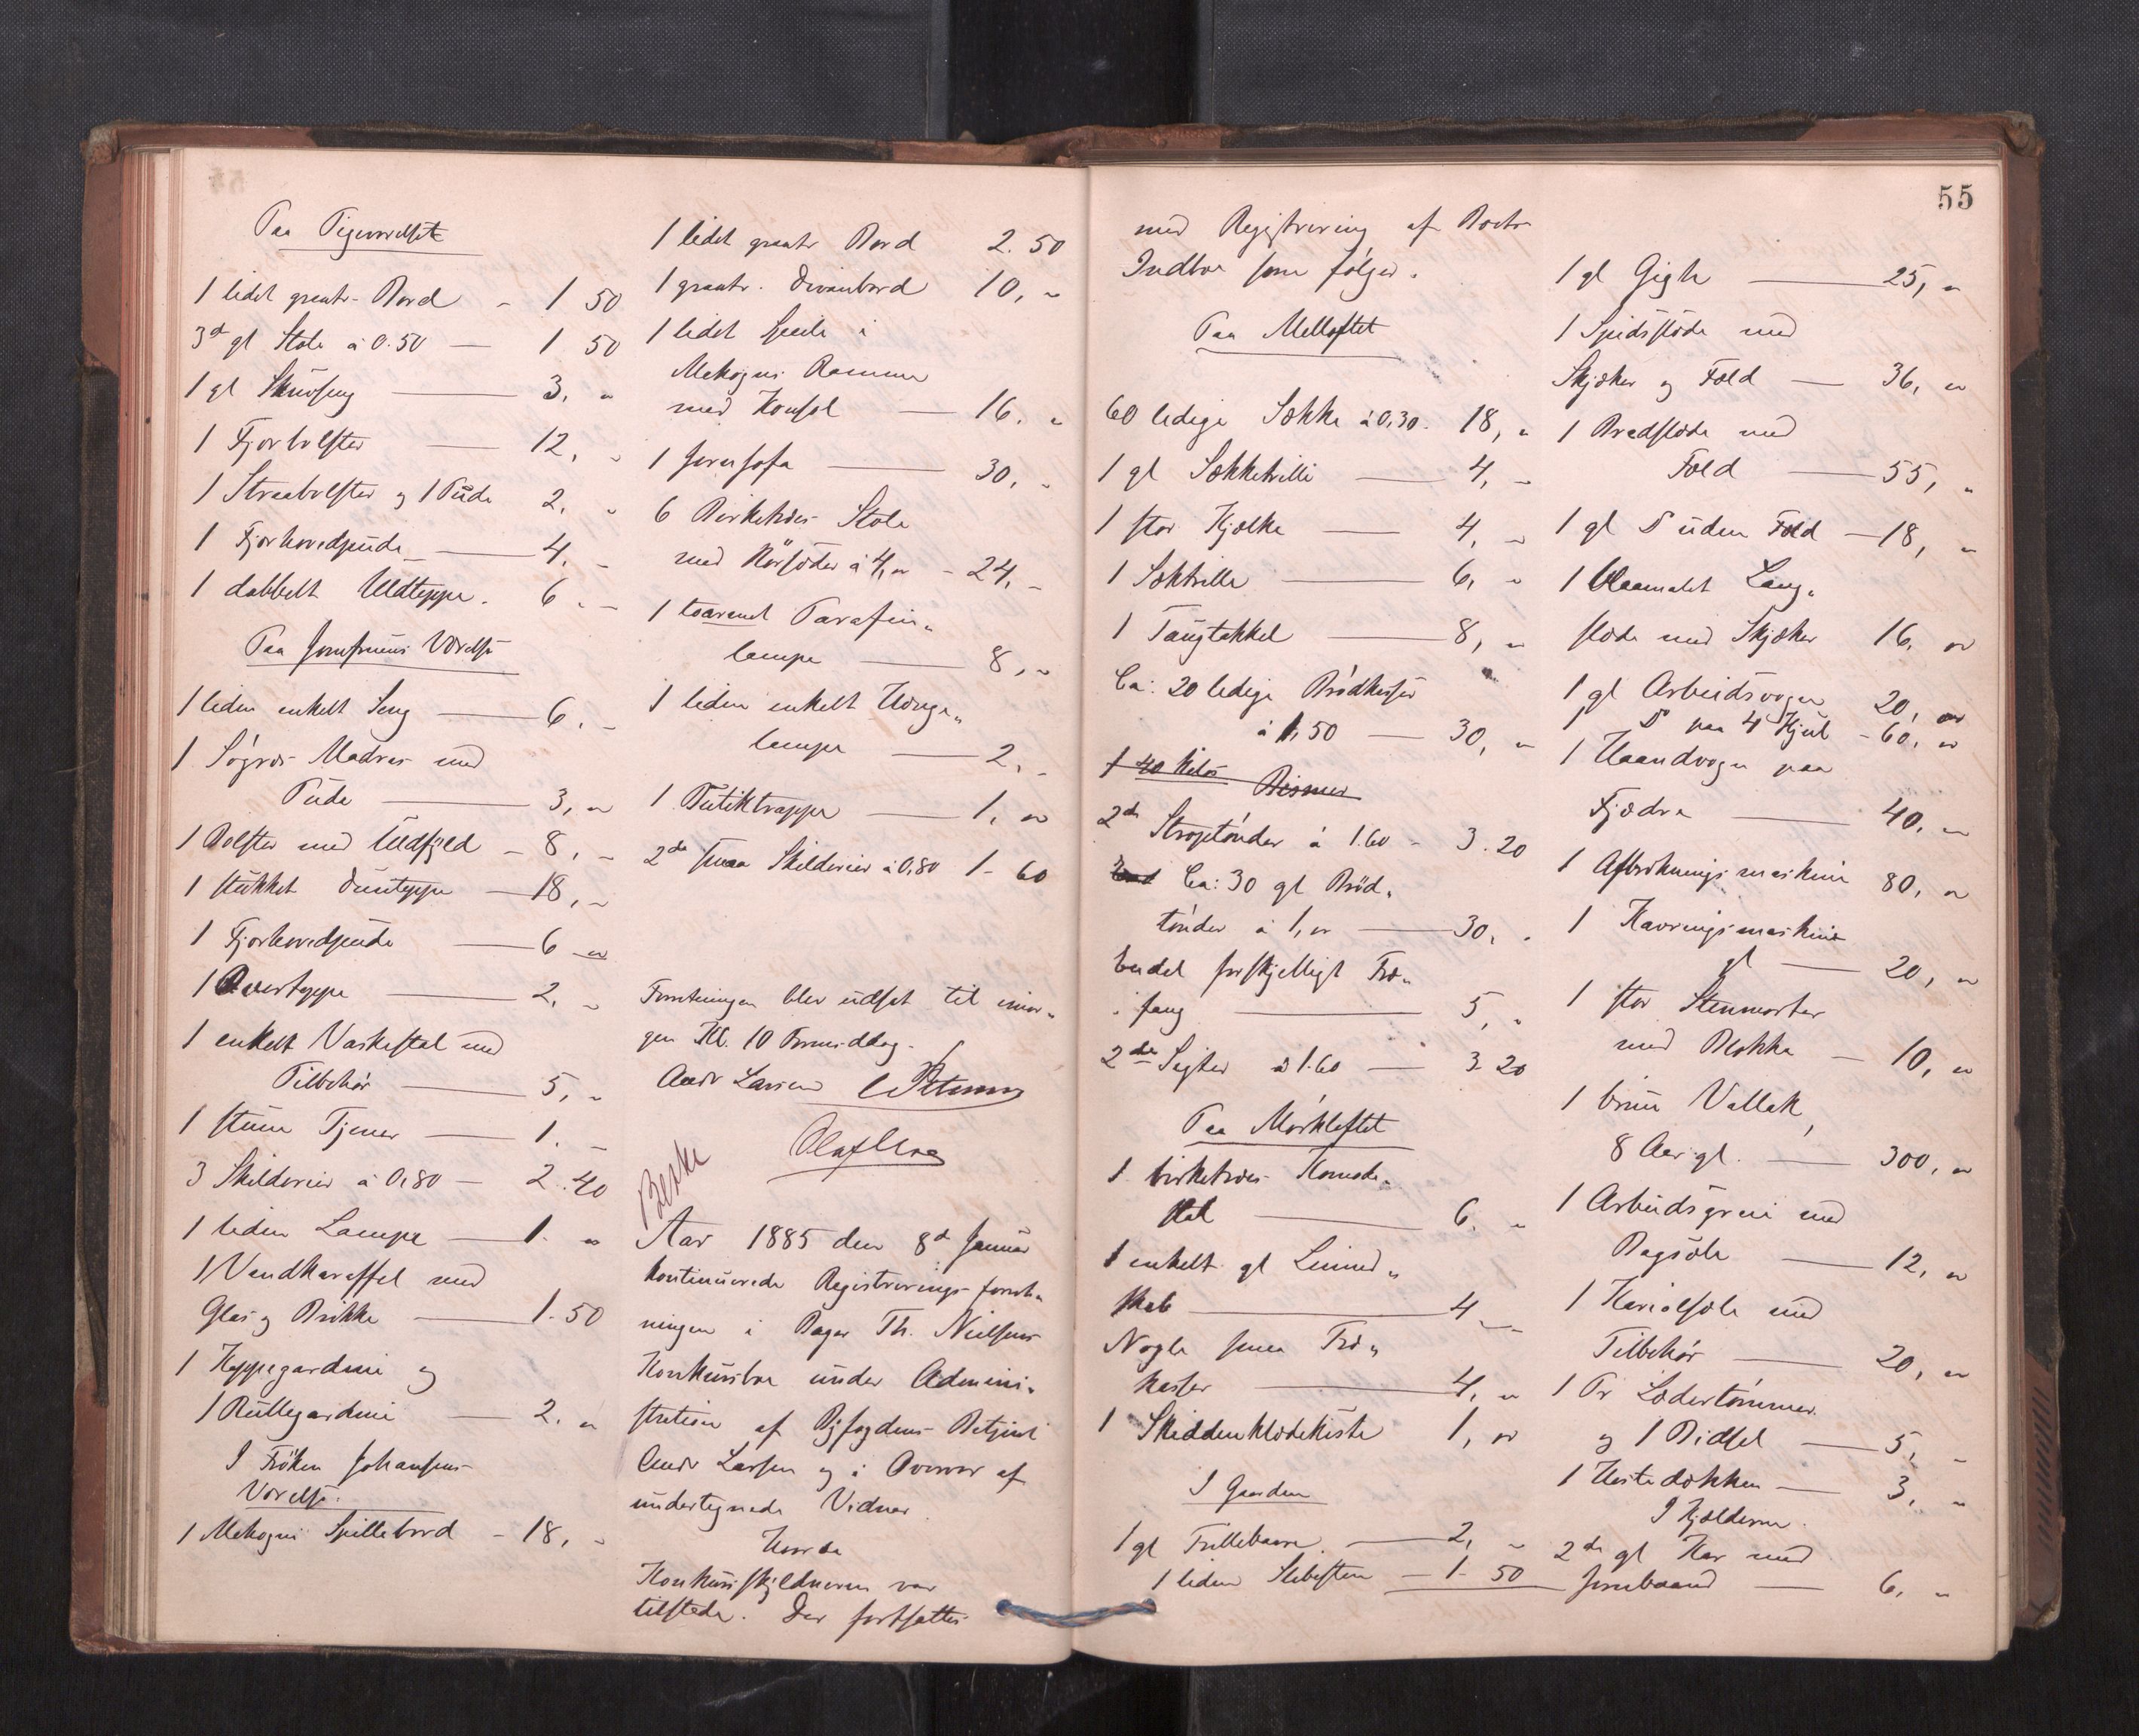 Paa Pigeværelset
1 lidet grantr. Bord - 1 50
3de gl Stole à 0.50 — 1 50
1 gl Skuvseng — 3, "
1 Fjærbolster — 12, "
1 Straabolster og 1 Pude 2, "
1 Fjærhovedpude — 4, -
1 dobbelt Uldteppe. 6. -
Paa Jomfruens Værelse
1 liden enkelt Seng — 6. -
1 Søgræs Madras med
Pude — 3, "
1 Bolster med Uldfyld - 8, -
1 stukket Dunteppe — 18, -
1 Fjærhovedpude — 6 "
1 Overteppe — 2, -
1 enkelt Vaskestol med
Tilbehør — 5, -
1 stum Tjener — 1. -
3 Skilderier à 0,80 — 2.40
1 liden Lampe — 1. "
1 Vandkaraffel med
Glas og Brikke — 1.50
1 Kappegardine og
1 Rullegardine — 2. "
I Frøken Johansens
Værelse.
1 Mahogni Spillebord - 18, -
1 lidet grantr Bord 2.50
1 grantr. Divanbord 10, "
1 lidet Speile i
Mahogni Ramme
med Konsol — 16. "
1 Jernsofa — 30, -
6 Birketræs Stole
med Rørsæder à 4, " - 24, -
1 toarmet Parafin„
lampe — 8, "
1 liden enkelt Hænge„
lampe — 2, -
1 Butiktrappe — 1, "
2de smaa Skilderier à 0,80 1 - 60
Forretningen blev udsat til imor„
gen Kl. 10 Formiddag.
Andr Larsen C Petersen
Olaf
Aar 1885 den 8de Januar
kontinuerede Registrerings-forret„
ningen i Bager Th. Nielsens
Konkursbo under Admini„
stration af Byfogdens Betjent
Andr Larsen og i Overvær af
undertegnede Vidner
Hvorda
Konkursskyldneren var
tilstede. Der fortsattes
55
med Registrering af Boets
Indbo som følger.
Paa Melloftet
60 ledige Sække à 0,30. 18, "
1 gl Sækketrille — 4, -
1 stor Kjælke — 4, -
1 Sæktrille — 6, "
1 Taugtakkel — 8, "
Ca: 20 ledige Brødkasser
à 1,50 — 30, "
1 40 Kilos Bismer
2de Siroptønder à 1.60 - 3.20
Ca: 30 gl Brød„
tønder à 1, " — 30, "
Endel forskjelligt Træ„
fang — 5, "
2de Sigter à 1.60 — 3 20
Paa Mørkloftet
1 birketræs Komode„
stol — 6. "
1 enkelt gl Linned„
skab — 4 -
Nogle smaa Træ„
kasser — 4, "
1 Skiddenklædekiste 1, "
I Gaarden
1 gl Trillebaare. — 2, "
1 liden Slibesten — 1 - 50
1 gl Gigh — 25, "
1 Spidsslæde med
Skjæker og Fæld — 36, "
1 Bredslæde med
Fæld — 55, "
1 gl Do uden Fæld — 18, "
1 blaamalet Lang„
slæde med Skjæker 16, "
1 gl Arbeidsvogn 20, "
1 Do paa 4 Hjul - 60, "
1 Haandvogn paa
Fjædre — 40, "
1 Afbrækningsmaskine 80, "
1 Kavringsmaskine
gl — 20, "
1 stor Stenmorter
med Blokke — 10, "
1 brun Vallak,
8 Aar gl. — 300, "
1 Arbeidsgreie med
Bagsæle — 12, "
1 Kariolsæle med
Tilbehør — 20, "
1 Pr Lædertømmer
og 1 Bidsel — 5, -
1 Hestedækken — 3, "
I Kjælderne.
2de gl Kar med
Jernbaand — 6, "